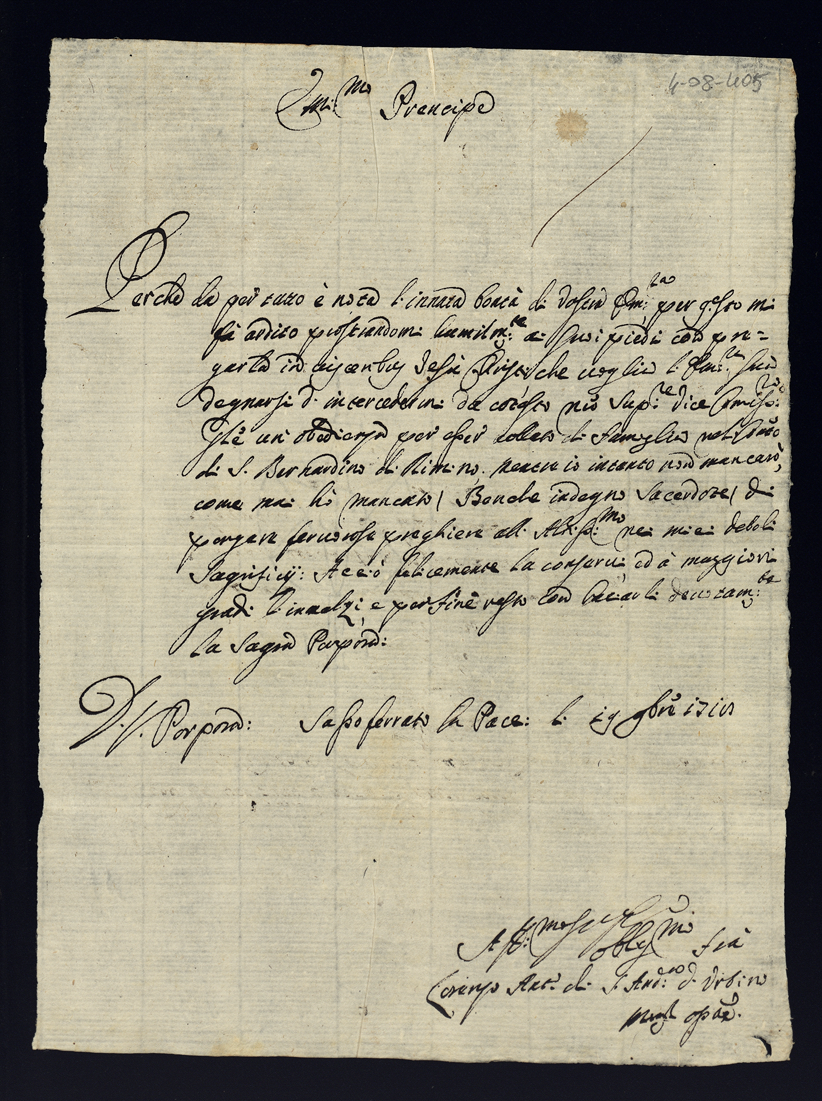 4-08-405
Em:mo Prencipe
Perche da per tutto è nota l'innata bontà di Vostra Em:za per q.esto mi
fà ardito prostrandomi humilm:te ai suoi piedi con pre-
garla in visceribus Jesu Christi, che voglia l'Em:za sua
degnarsi d'intercedermi da cotesto mio Sup:re Vice
un'obedienza per esser collato di famiglia nel
di S. Bernardino di Rimino. Mentre io intanto non mancarò,
come mai hò mancato (Benche indegno Sacerdote) di
porgere fervorose preghiere all'Altiss:mo nei miei deboli
Sagrificij: Acciò felicemente la conservi ed à maggiori
gradi l'innalzi e per fine resto con baciarli devotam:te
la Sagra Porpora:
D. V. Porpora: Sassoferrato la Pace: li 29 9bre
Aff:mo obblig.mo Frà
Lorenzo Ant.o di S. And:
d'Urbino